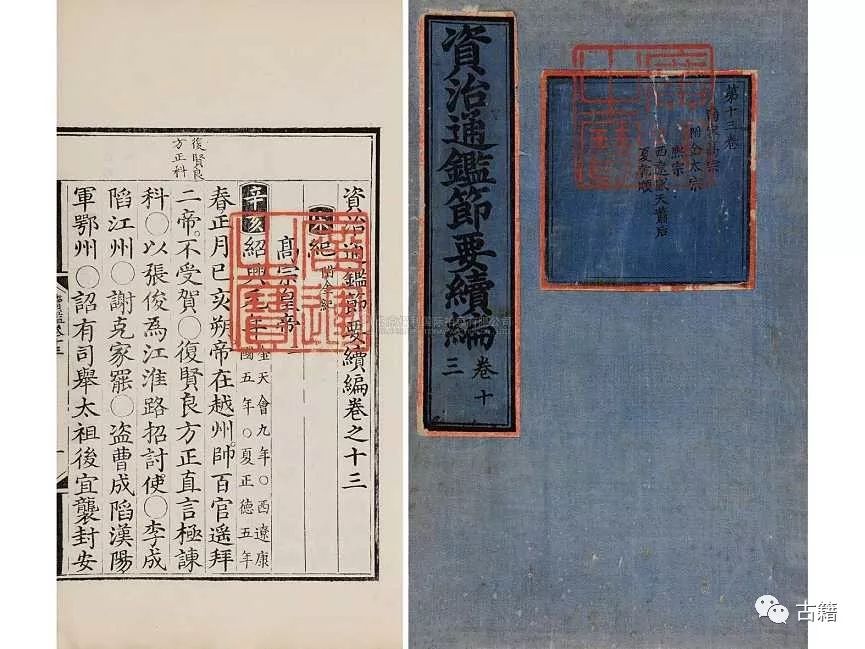 復賢良
方正科
資治通鑑節要續編卷之十三
宋紀附金紀
高宗皇帝
辛亥紹興元年
金天會九年〇西遼康
國五年〇夏正德五年
春正月己亥朔帝在越州帥百官遥拜
二帝不受賀〇復賢良方正直言極諫
科〇以張俊爲江淮路招討使〇李成
陷江州〇謝克家罷〇盗曹成陷漢陽
軍鄂州〇詔有司舉太祖後宜襲封安
資治通鑑節要續編
卷十三
第十三卷
南宋高宗
附金太宗
熙宗
西遼感天蕭后
夏乾順
古籍